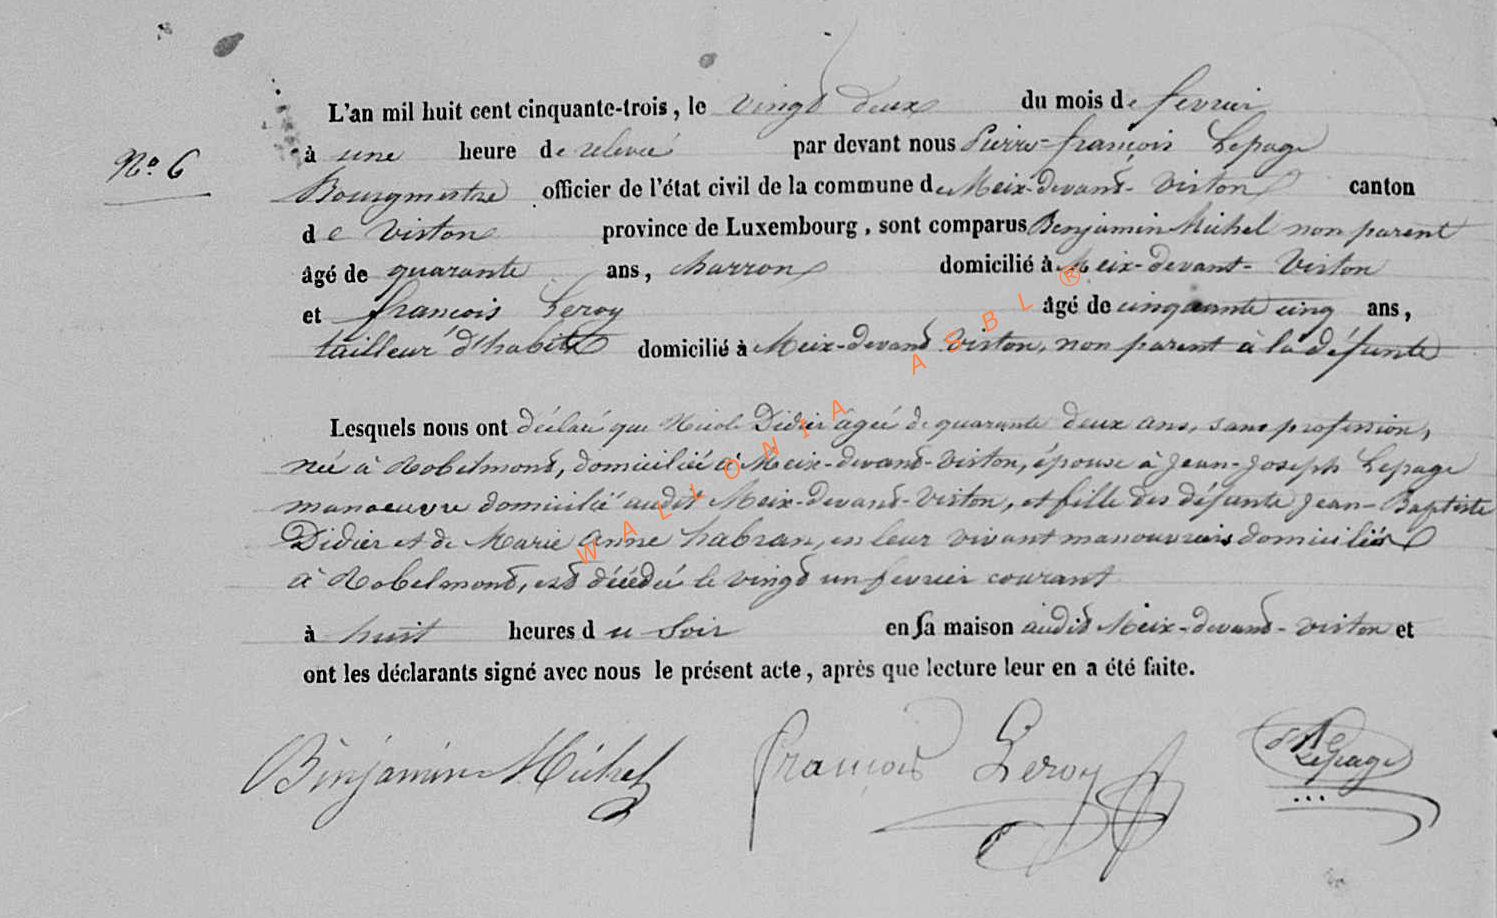 L'an mil huit cent cinquante-trois, le vingt deux du mois de fevrier
No. 6
à une heure de relevée par devant nous Pierre-françois Lepage
Bourgmestre officier de l'état civil de la commune de Meix-devant-Virton canton
de Virton province de Luxembourg, sont comparus Benjamin Michel non parent
âgé de quarante ans, charron domicilié à Meix-devant-Virton
et françois Leroy âgé de cinquante cinq ans,
tailleur d'habits domicilié à Meix-devant Virton, non parent à la défunte
Lesquels nous ont déclaré que Nicole Didier âgée de quarante deux ans, sans profession,
née à Robelmont, domiciliée à Meix-devant-Virton, épouse à Jean-Joseph Lepage
manoeuvre domicilié audit Meix-devant-Virton, et fille des défunts Jean-Baptiste
Didier et de Marie Anne habran, en leur vivant manouvriers domiciliés
à Robelmont, est décédée le vingt un fevrier courant
à huit heures du soir en sa maison audit Meix-devant-Virton et
ont les déclarants signé avec nous le présent acte, après que lecture leur en a été faite.
Benjamin Michel françois Leroy Lepage
WALLONIA ASBL ®